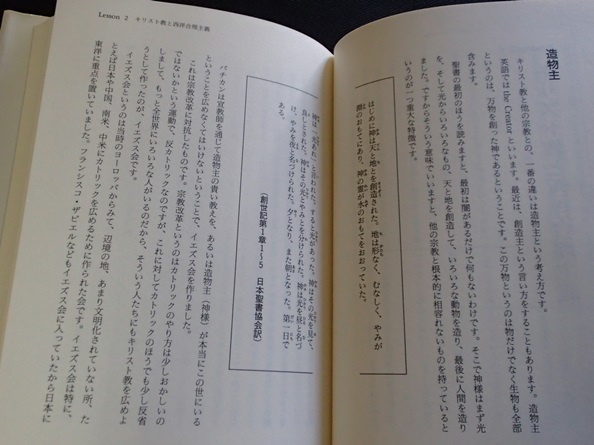 造物主
キリスト教と他の宗教との、一番の違いは造物主という考え方です。
英語では the Creator といいます。最近は、創造主という言い方をすることもあります。造物主
というのは、万物を創った神であるということです。この万物というのは物だけでなく生物も全部
含みます。
聖書の最初のほうを読みますと、最初は闇があるだけで何もないわけです。そこで神様はまず光
を、そして光からいろいろなもの、天と地を創造して、いろいろな動物を造り、最後に人間を造り
ました。ですからそういう意味でいいますと、他の宗教と根本的に相容れないものを持っていると
いうのが一つ重大な特徴です。
はじめに神は天と地とを創造された。地は形なく、むなしく、やみが
淵のおもてにあり、神の霊が水のおもてをおおっていた。
Lesson 2 キリスト教と西洋合理主義
神は「光あれ」と言われた。すると光があった。神はその光を見て、
良しとされた。神はその光とやみとを分けられた。神は光を昼と名づ
け、やみを夜と名づけられた。夕となり、また朝となった。第一日で
ある。
(創世記第1章1〜5 日本聖書協会訳)
バチカンは宣教師を通じて造物主の貴い教えを、あるいは造物主(神様)が本当にこの世にいる
ということを広めなくてはいけないということで、イエズス会を作りました。
これは宗教改革に対抗したものです。宗教改革というのはカトリックのやり方は少しおかしいの
ではないかという運動で、反カトリックなのですが、これに対してカトリックのほうでも少し反省
して、もっと全世界にいろいろな人がいるのだから、そういう人たちにもキリスト教を広めよ
うとして作ったのが、イエズス会です。
イエズス会というのは当時のヨーロッパからみて、辺境の地、あまり文明化されていない所、た
とえば日本や中国、南米、中米にカトリックを広めるために作られた会です。イエズス会は特に、
東洋に重点を置いていました。フランシスコ・ザビエルなどもイエズス会に入っていたから日本に